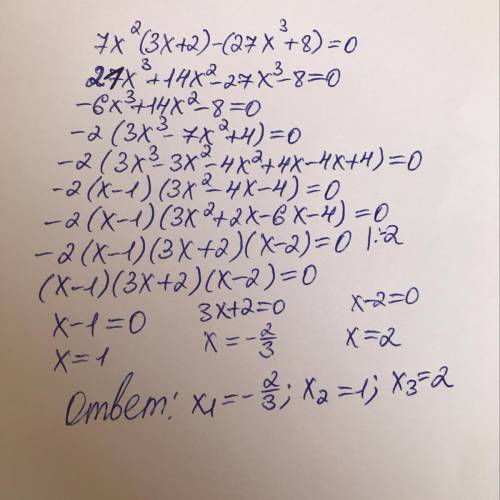 7x²(3x+2)-(27x³+8)=0
21x³+14x²-27x³-8=0
-6x³+14x²-8=0
-2(3x³-7x²+4)=0
-2(3x³-3x²-4x²+4x-4x+4)=0
-2(x-1)(3x²-4x-4)=0
-2(x-1)(3x²+2x-6x-4)=0
-2(x-1)(3x+2)(x-2)=0 |:-2
(x-1)(3x+2)(x-2)=0
x-1=0 3x+2=0 x-2=0
x=1 x=-2/3 x=2
Ответ: x₁=-2/3; x₂=1; x₃=2